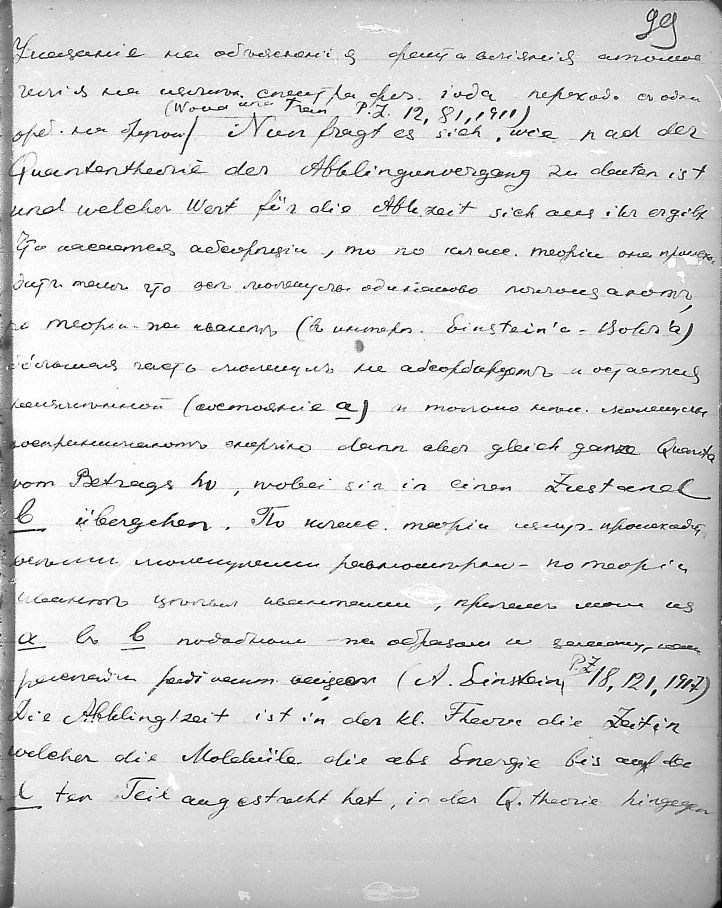 99
Указание на объяснения факта влияния атомов
гелія на спектра фл. iода переход. съ одн.
(Wood und Fran P.Z. 12, 81, 1911)
орб. на другой/ Nun fragt es sich, wie nach der
Quantentheorie der Abklingunvergang zu deuten ist
und welcher Wert für die Abkzeit sich aus ihr ergibt
Что касается абсорпціи, то по класс. теоріи она происхо-
дитъ такъ что все молекулы одинаково поглощаютъ,
по теоріи-же квантъ (въ интерп. Einstein'а - Bohr'а)
большая часть молекулъ не абсорбируетъ и остается
неизмѣнной (состояніе a) и только нѣк. молекулы
воспринимаютъ энергію dann aber gleich ganze Quanta
vom Betrags hν, wobei sie in einen Zustand
b übergehen. По класс. теоріи излуч. происходитъ
всѣми молекулами равномѣрно - по теоріи
квантъ цѣлыми квантами, причемъ мол. из
a въ b подобным-же образом и закону, как
распадъ радіоакт. веществ (A. Einstein, P.Z. 18, 121, 1917)
Die Abklingtzeit ist in der kl. Theorie die Zeit in
welcher die Moleküle die abs Energie bis auf de
l ten Teil ausgestracht hat, in der Q. theorie hingegen